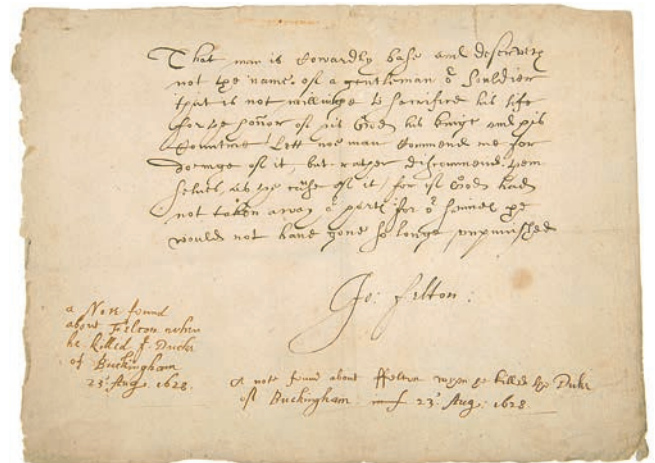 That man is cowardly base and deserveth
not the name of a gentleman or Souldier
that is not willinge to sacrifice his life
for the honor of his God his Kinge and his
Countrie Lett noe man commend me for
doeinge of it, but rather discommend them
selves as the cause of it, for if God had
not taken away or harts for or sinnes he
would not have gone so longe unpunished
Jo: Felton:
a Note found
about Felton when
he killed ye Duke
of Buckingham
23. Aug. 1628.
A note found about Felton when he killed the Duke
of Buckingham 23. Aug: 1628.